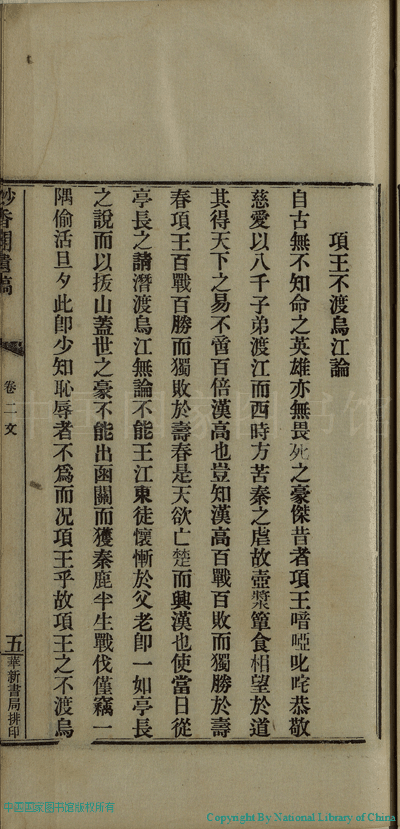 項王不渡烏江論
自古無不知命之英雄亦無畏死之豪傑昔者項王喑啞叱咤恭敬
慈愛以八千子弟渡江而西時方苦秦之虐故壺漿簞食相望於道
其得天下之易不啻百倍漢高也豈知漢高百戰百敗而獨勝於壽
春項王百戰百勝而獨敗於壽春是天欲亡楚而興漢也使當日從
亭長之請潛渡烏江無論不能王江東徒懷慚於父老卽一如亭長
之說而以拔山蓋世之豪不能出函關而獲秦鹿半生戰伐僅竊一
隅偷活旦夕此卽少知恥辱者不爲而况項王乎故項王之不渡烏
妙香閣遺稿
卷二文
五
華新書局排印
中国国家图书馆
中国国家图书馆版权所有
Copyright By National Library of China